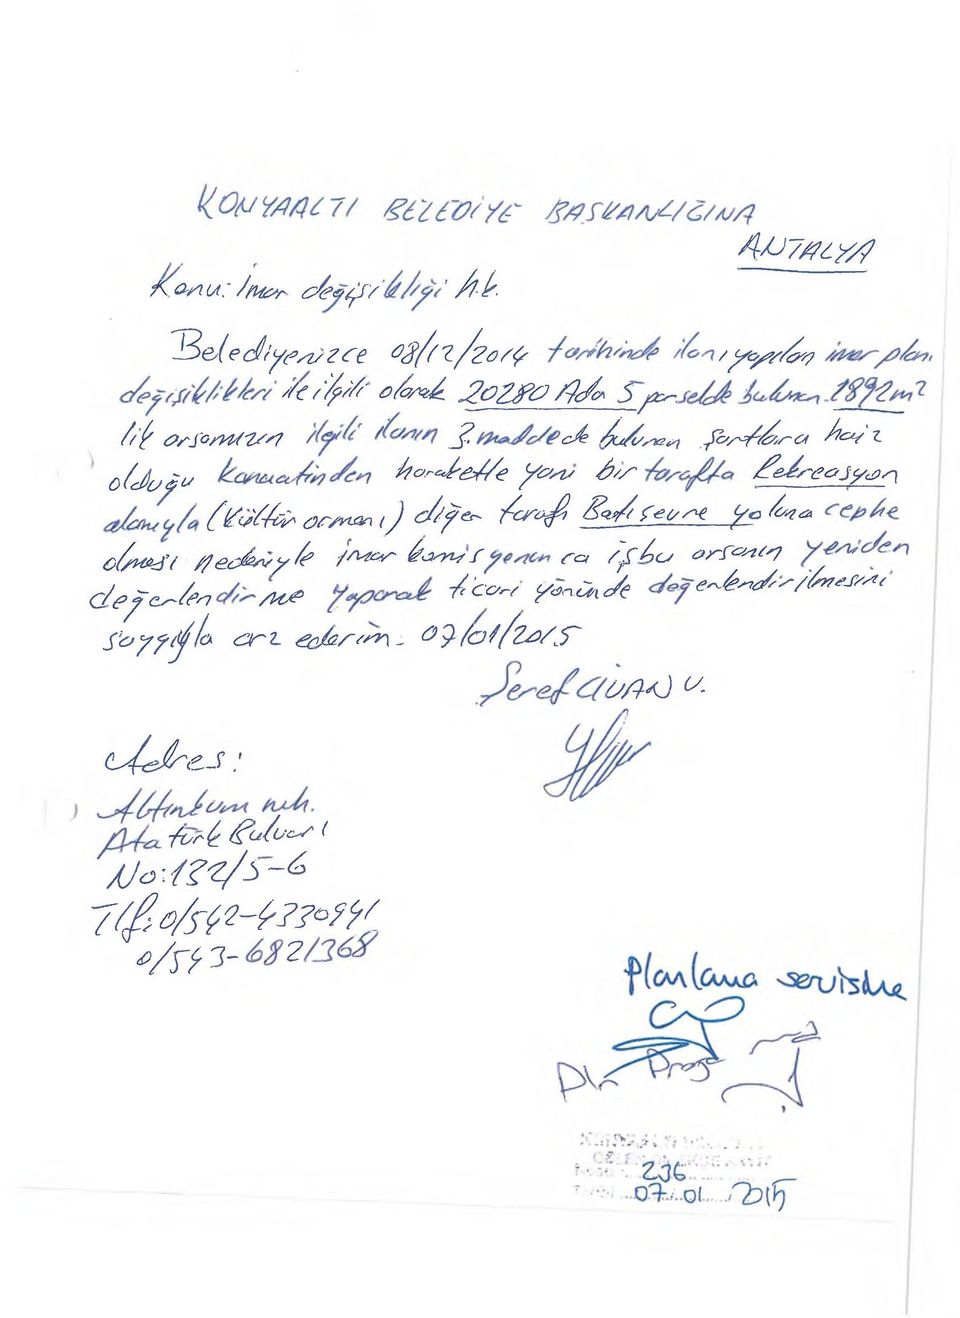 KONYAALTI BELEDİYE BAŞKANLIĞINA
ANTALYA
Konu: İmar değişikliği h.k.
Belediyenizce 08/12/2014 tarihinde ilanı yapılan imar planı
değişiklikleri ile ilgili olarak 20280 Ada 5 parselde bulunan 1892m²
lik arsamızın ilgili ilanın 3. maddede bulunan şartlara haiz
olduğu kanaatinden hareketle yani bir tarafta Rekreasyon
alanıyla (Kültür ormanı) diğer tarafı Batı çevre yoluna cephe
olması nedeniyle imar komisyonunca işbu arsanın yeniden
değerlendirme yaparak ticari yönünde değerlendirilmesini
saygıyla arz ederim. 07/01/2015
Şeref CİVAN V.
Adres:
Altınkum mh.
Atatürk Bulvarı
No:132/5-6
Tlf: 0/542-4330941
0/543-6821368
Planlama servisine
Pln Proje
236
07.01.2015